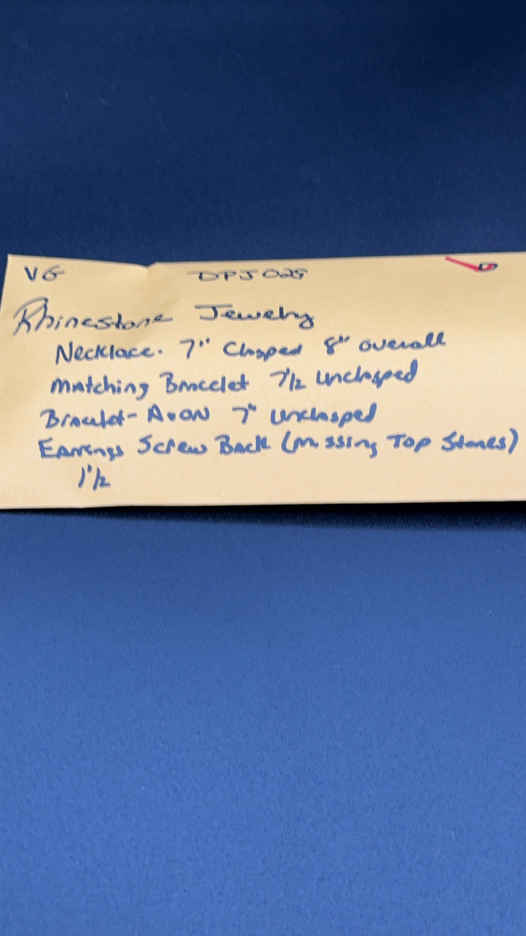 VG DPJ029
Rhinestone Jewelry
Necklace. 7" Clasped 8" overall
Matching Bracelet 7 1/2 unclasped
Bracelet- Avon 7" unclasped
Earrings Screw Back (missing Top Stones)
1 1/2